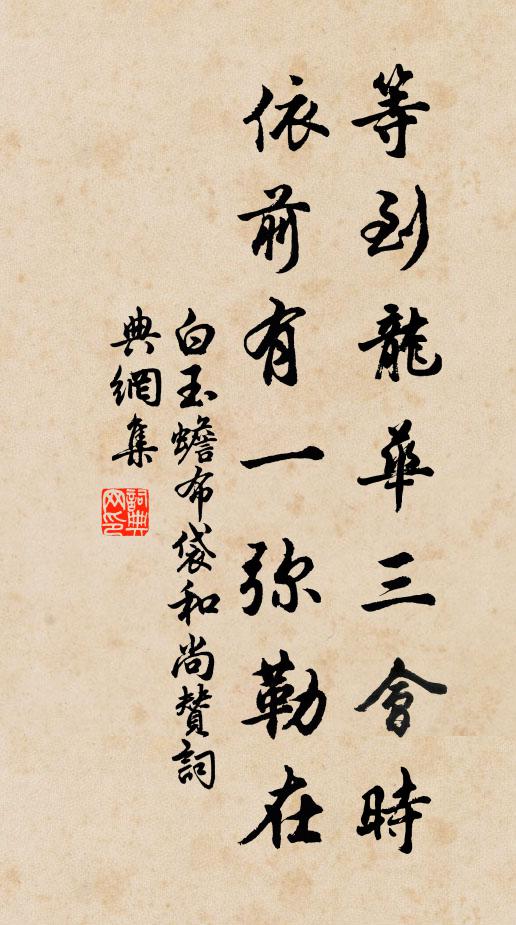 等到龍華三會時
依前有一弥勒在
白玉蟾布袋和尚贊詞
典網集
詞典網印